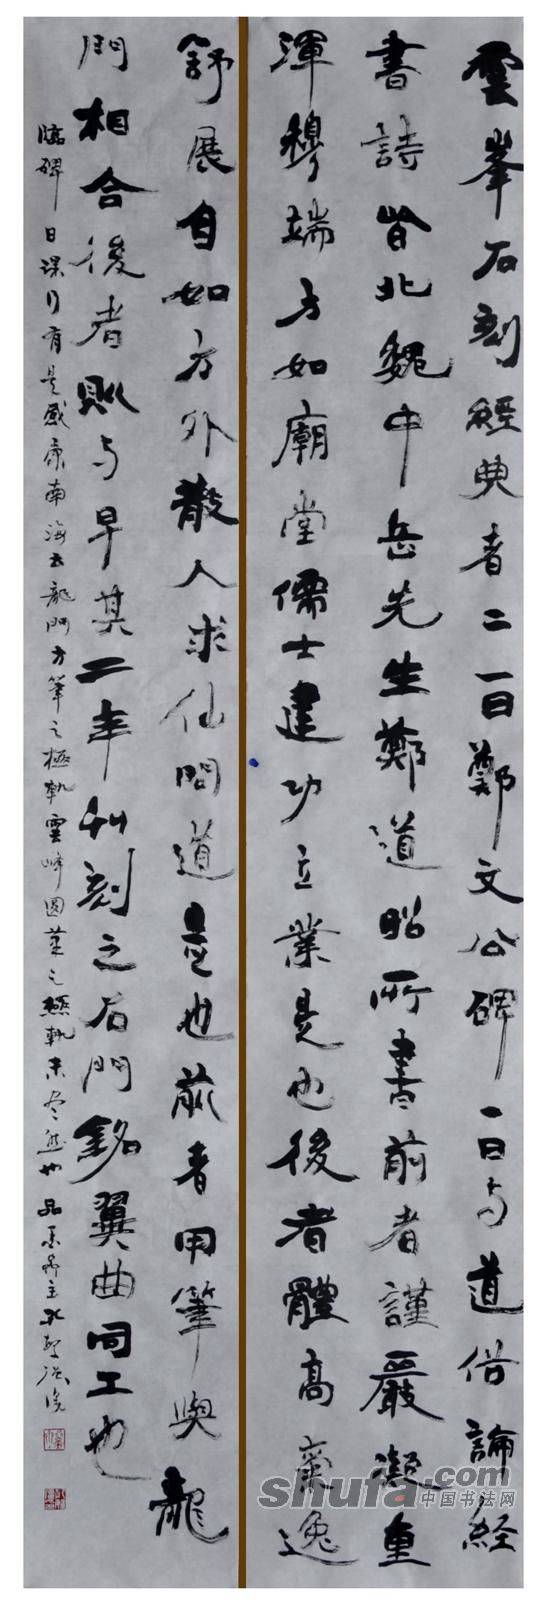 雲峯石刻經典者二一曰鄭文公碑一曰與道俗論經
書詩皆北魏中岳先生鄭道昭所書前者謹嚴凝重
渾穆端方如廟堂儒士建功立業是也後者體高氣逸
舒展自如方外散人求仙問道是也前者用筆與龍
門相合後者則与早其二年刊刻之石門銘異曲同工也
臨碑日深自有是感康南海云龍門方筆之極軌雲峰圓筆之極軌未尽然也
shufa.com
中国书法网